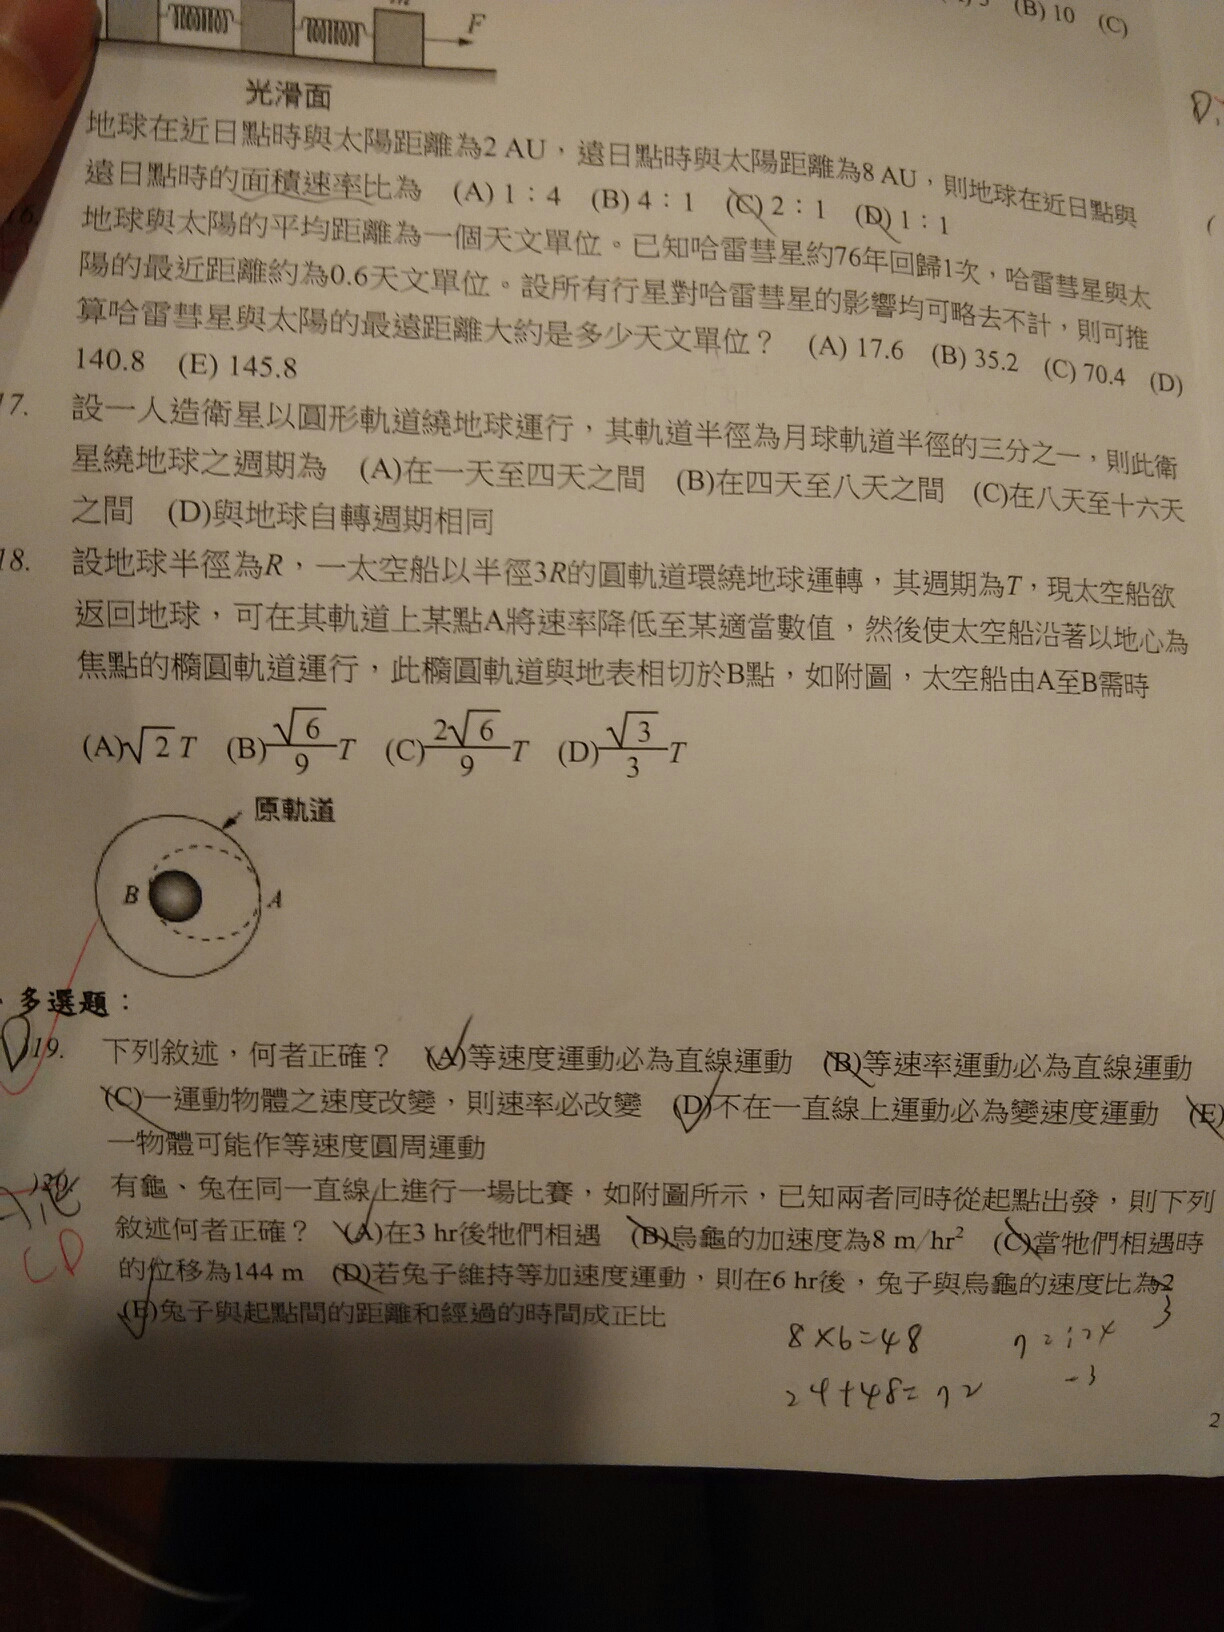 (B) 10 (C)
F
光滑面
地球在近日點時與太陽距離為2 AU，遠日點時與太陽距離為8 AU，則地球在近日點與
遠日點時的面積速率比為 (A) 1：4 (B) 4：1 (C) 2：1 (D) 1：1
16.
地球與太陽的平均距離為一個天文單位。已知哈雷彗星約76年回歸1次，哈雷彗星與太
陽的最近距離約為0.6天文單位。設所有行星對哈雷彗星的影響均可略去不計，則可推
算哈雷彗星與太陽的最遠距離大約是多少天文單位？ (A) 17.6 (B) 35.2 (C) 70.4 (D)
140.8 (E) 145.8
17. 設一人造衛星以圓形軌道繞地球運行，其軌道半徑為月球軌道半徑的三分之一，則此衛
星繞地球之週期為 (A)在一天至四天之間 (B)在四天至八天之間 (C)在八天至十六天
之間 (D)與地球自轉週期相同
18. 設地球半徑為R，一太空船以半徑3R的圓軌道環繞地球運轉，其週期為T，現太空船欲
返回地球，可在其軌道上某點A將速率降低至某適當數值，然後使太空船沿著以地心為
焦點的橢圓軌道運行，此橢圓軌道與地表相切於B點，如附圖，太空船由A至B需時
(A)√2 T (B)√6/9 T (C)2√6/9 T (D)√3/3 T
原軌道
B
A
多選題：
19. 下列敘述，何者正確？ (A)等速度運動必為直線運動 (B)等速率運動必為直線運動
(C)一運動物體之速度改變，則速率必改變 (D)不在一直線上運動必為變速度運動 (E)
一物體可能作等速度圓周運動
20. 有龜、兔在同一直線上進行一場比賽，如附圖所示，已知兩者同時從起點出發，則下列
敘述何者正確？ (A)在3 hr後牠們相遇 (B)烏龜的加速度為8 m/hr² (C)當牠們相遇時
的位移為144 m (D)若兔子維持等加速度運動，則在6 hr後，兔子與烏龜的速度比為2
3
(E)兔子與起點間的距離和經過的時間成正比
CD
8×6=48
24+48=72
2